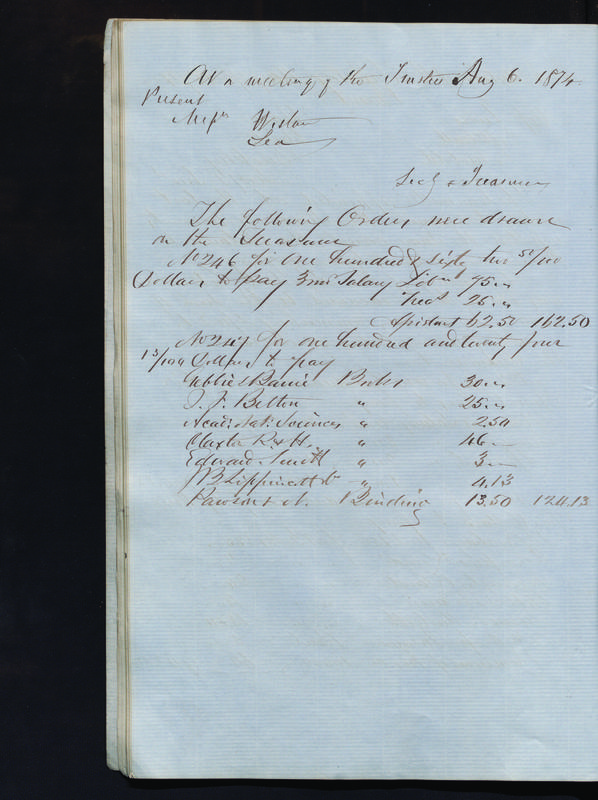 At a meeting of the Trustees Aug 6. 1874
Present
Messrs Wistar
Lea
Secy & Treasurer
The following Orders were drawn
on the Treasurer
No 246 for one hundred & sixty two 50/100
Dollars to pay 3 mos Salary Libn 75 "
Treas 25 "
Assistant 62.50 162.50
No 247 for one hundred and twenty four
13/100 Dollars to pay
Books 30 "
" 25 "
Acad. Nat. Sciences " 2.50
Claxton R. & H. " 46 —
Edward Smith " 3 —
J B Lippincott & Co " 4.13
Pawson & N. Binding 13.50 124.13